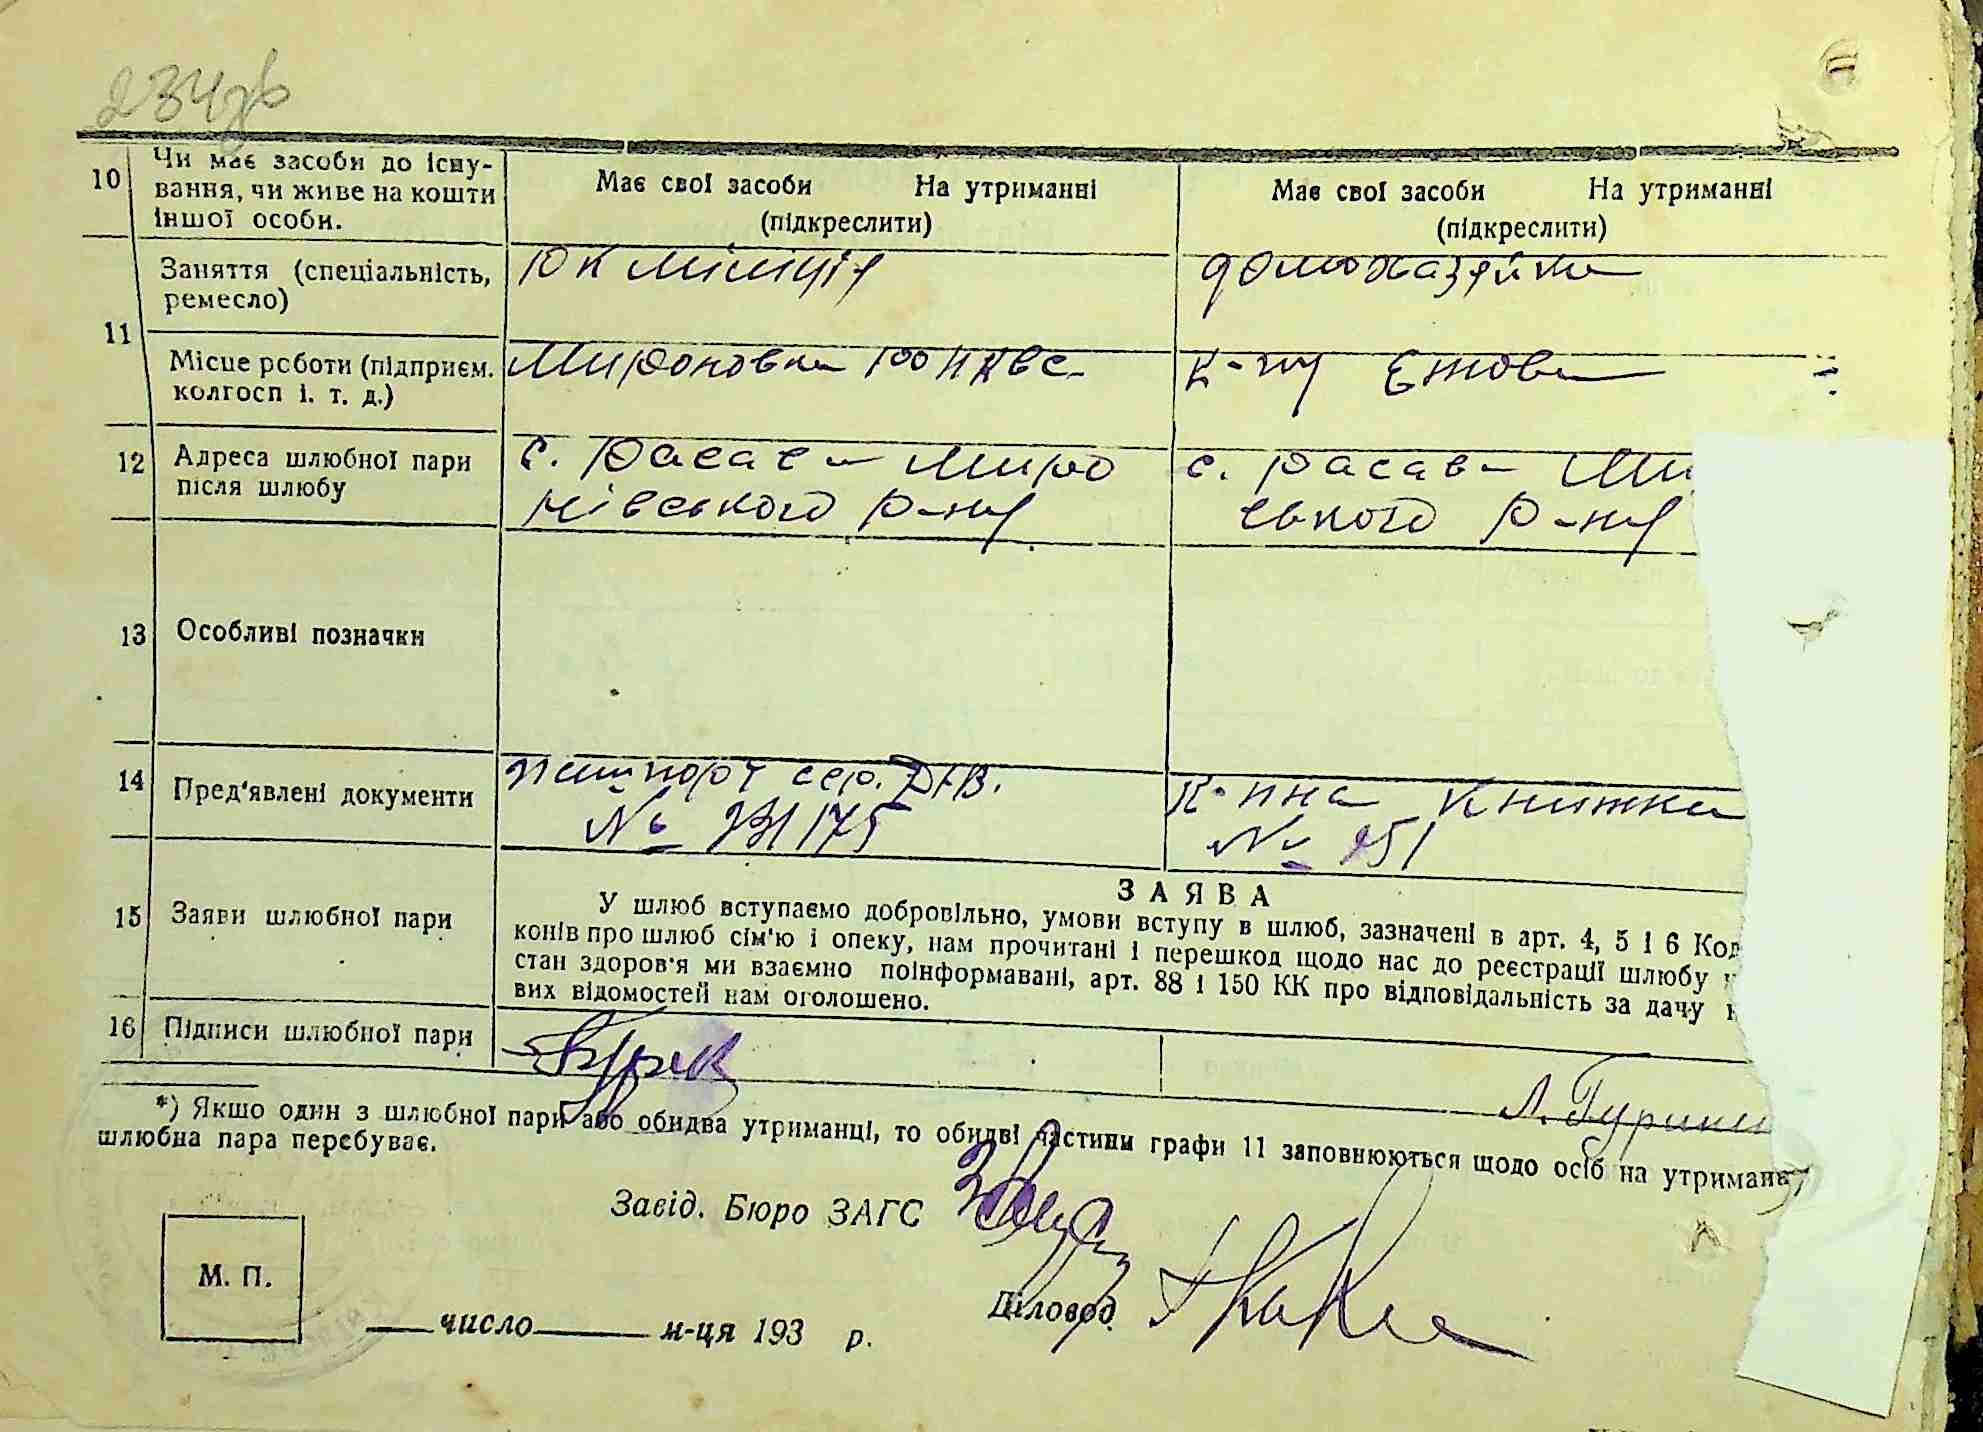 234зв
10
Чи має засоби до існу-
вання, чи живе на кошти
іншої особи.
Має свої засоби На утриманні
(підкреслити)
Має свої засоби На утриманні
(підкреслити)
11
Заняття (спеціальність,
ремесло)
міліції
домохазяйка
Місце роботи (підприєм.
колгосп і. т. д.)
Мироновка НКВС
к-пу Ежова
12
Адреса шлюбної пари
після шлюбу
с. Расава Миро
нівського р-ну
с. Расава Ми
ського р-ну
13
Особливі позначки
14
Пред'явлені документи
пашпорт сер.
№
к-пна книжка
№ 251
15
Заяви шлюбної пари
ЗАЯВА
У шлюб вступаємо добровільно, умови вступу в шлюб, зазначені в арт. 4, 5 і 6 Код
конів про шлюб сім'ю і опеку, нам прочитані і перешкод щодо нас до реєстрації шлюбу
стан здоров'я ми взаємно поінформавані, арт. 88 і 150 КК про відповідальність за дачу
вих відомостей нам оголошено.
16
Підписи шлюбної пари
Л. Гурин
*) Якшо один з шлюбної пари або обидва утриманці, то обидві частини графи 11 заповнюються щодо осіб на утриман
шлюбна пара перебуває.
Завід. Бюро ЗАГС
М. П.
Діловод
число м-ця 193 р.